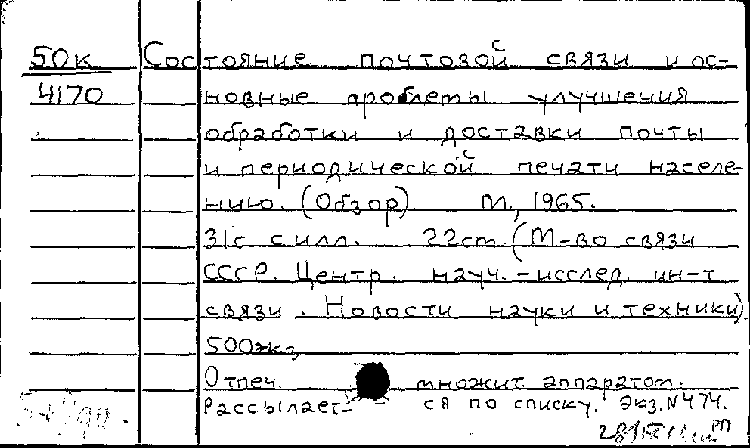 50к Состояние почтовой связи и ос-
4170 новные проблемы улучшения
обработки и доставки почты
и периодической печати населе-
нию. (Обзор) М., 1965.
31с с илл. 22см (М-во связи
СССР. Центр. науч.-исслед. ин-т
связи. Новости науки и техники)
500экз
Отпеч. множит. аппаратом.
Рассылает- ся по списку. Экз.N474.